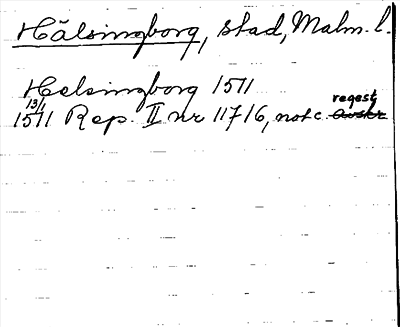 Hälsingborg, stad, Malm. l.
Helsingborg 1511
13/1 1511 Rep. II nr 11716, not c. regest